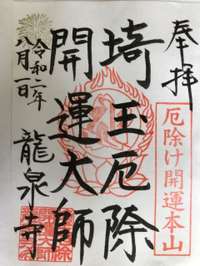 奉拝
厄除け開運本山
埼玉厄除
開運大師
令和二年
八月一日
龍泉寺